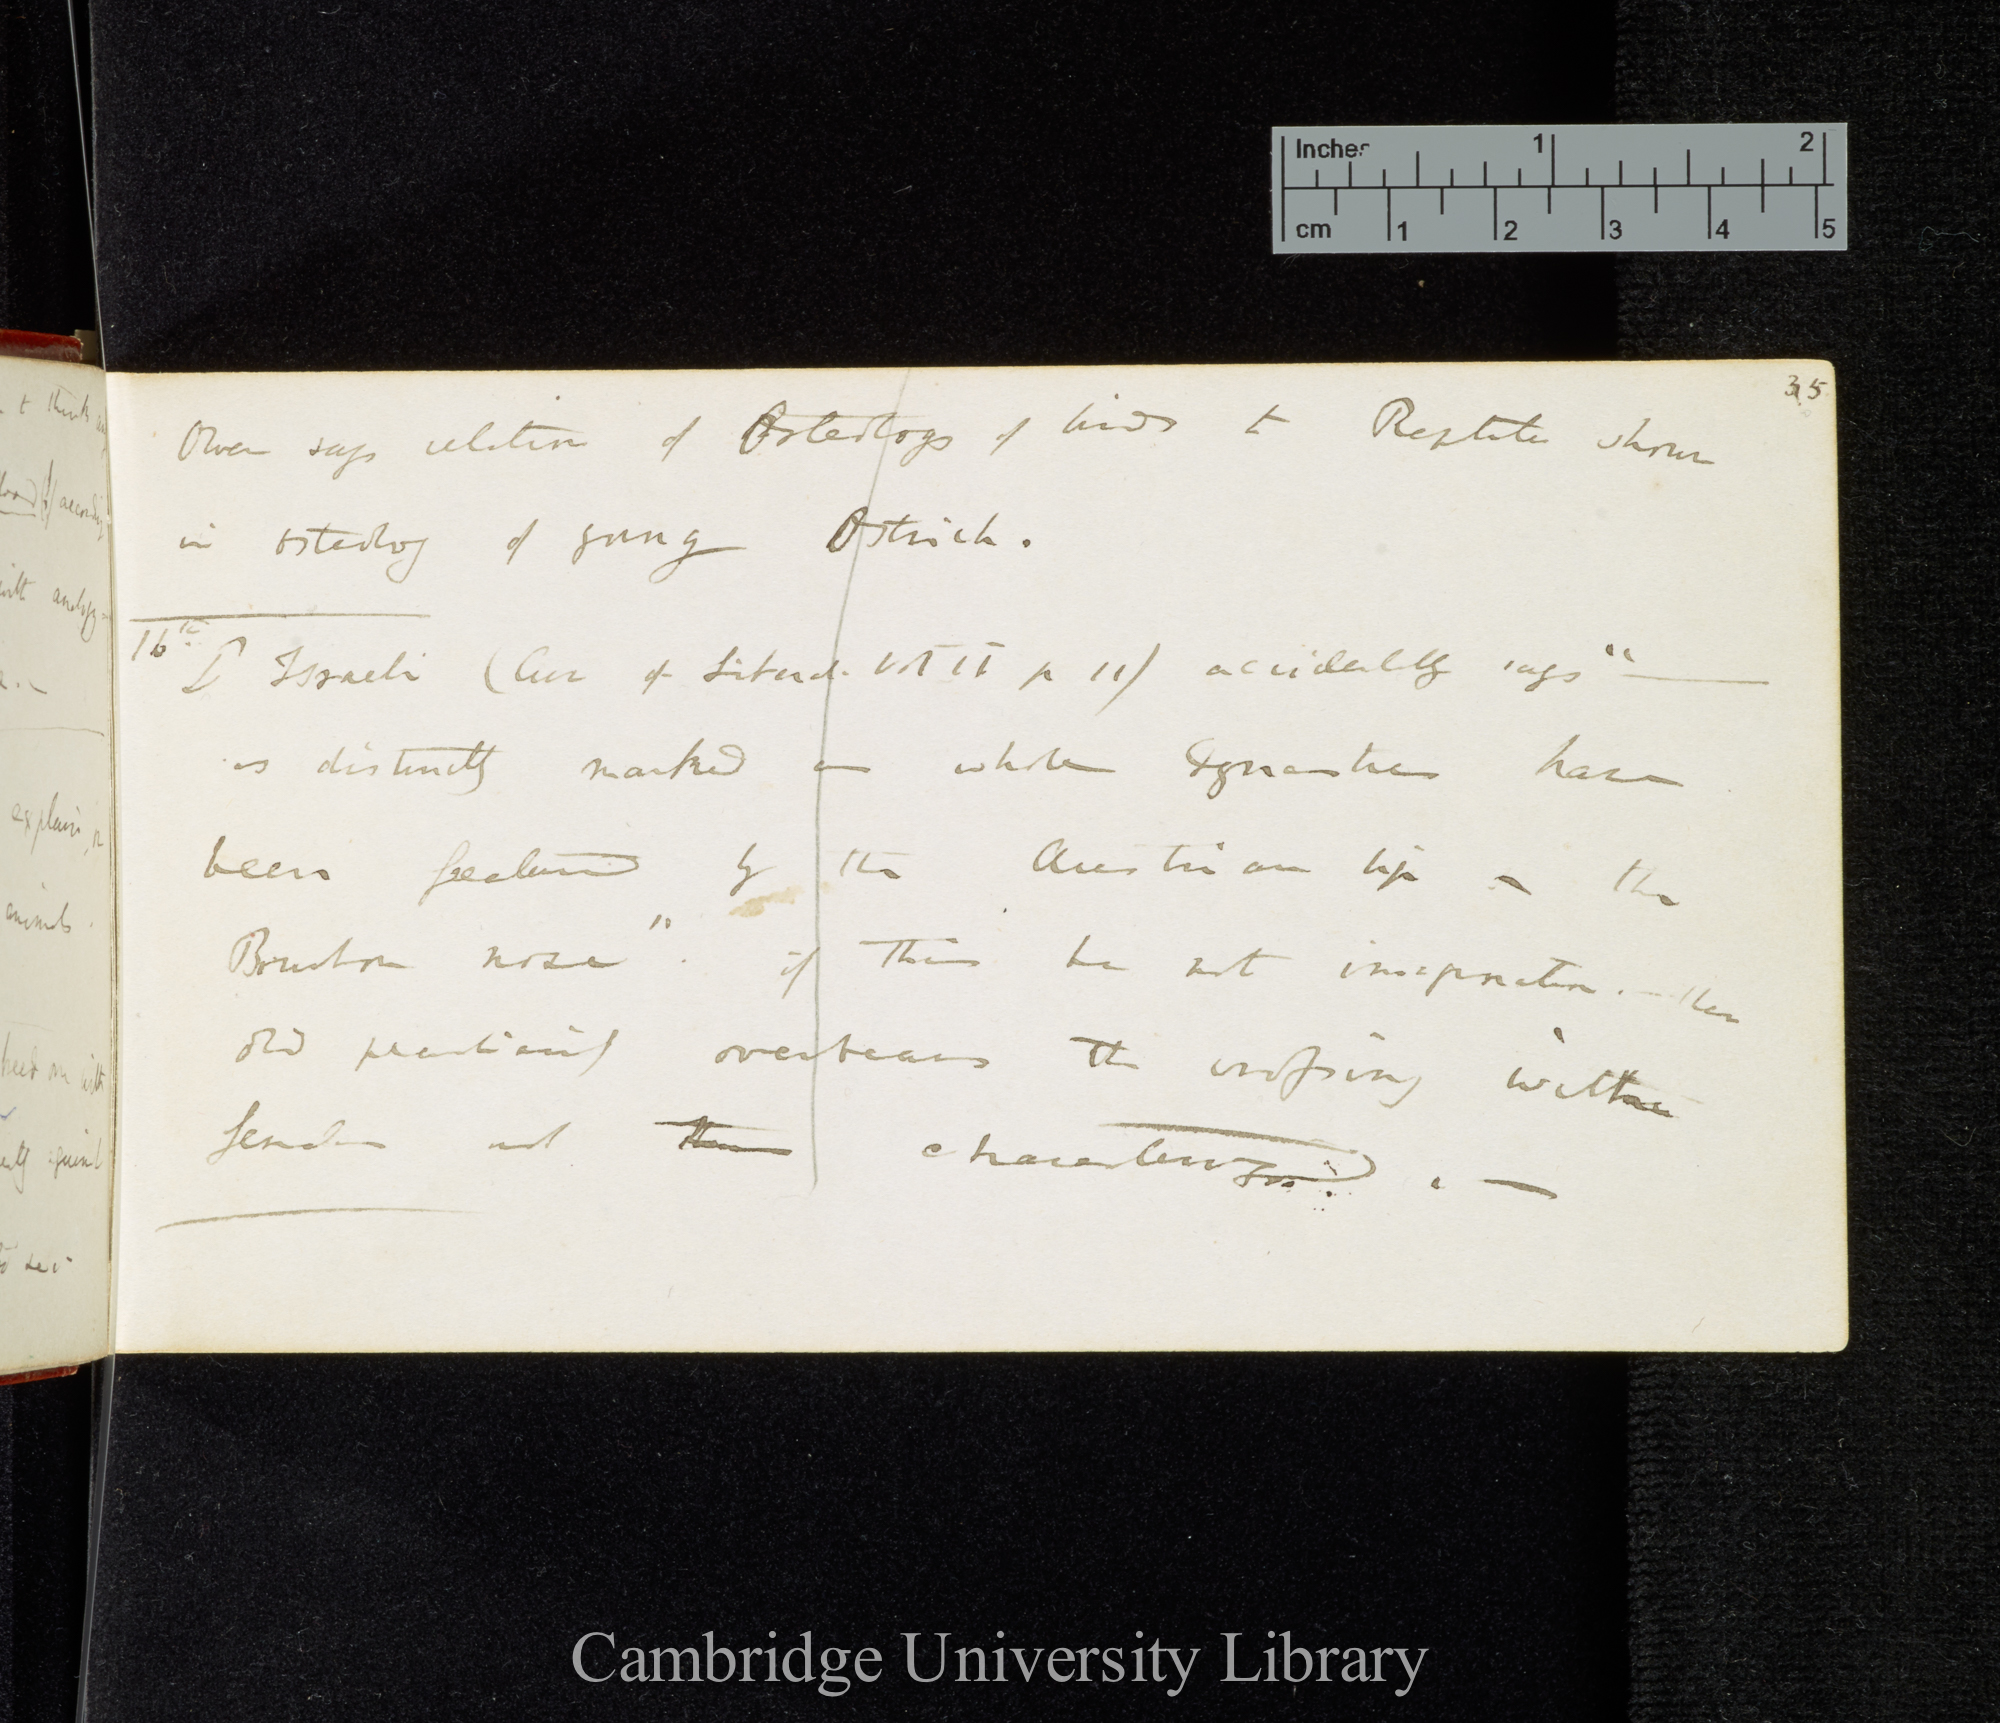 35
Owen says relation of Osteology of birds to Reptiles shown
in osteology of young Ostrich.
16th D' Israeli (Cur of Literat. Vol II p 11) accidentally says "—
as distinctly marked as whole dynasties have
been featured by the Austrian lip or the
Bourbon nose". if this be not imagination. — then
old peculiarity overbears the crossing with
females not characterized. —
Inches 1 2
cm 1 2 3 4 5
explain, or
animals.
analogy
Cambridge University Library